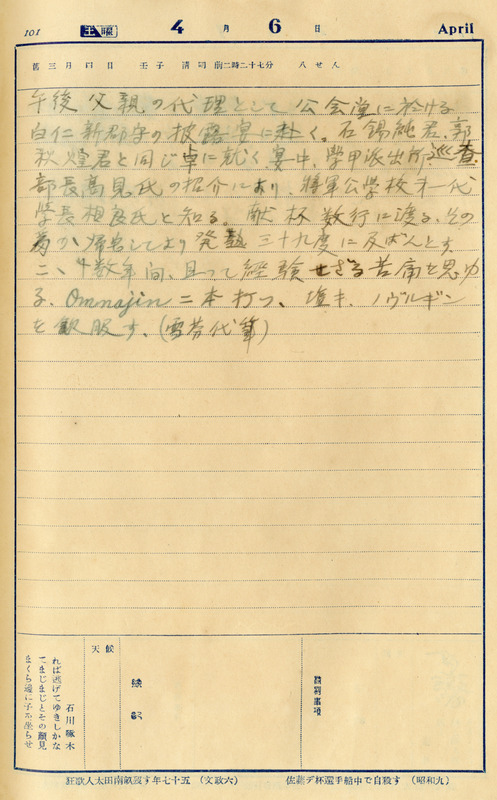 101 土曜 4月6日 April
舊三月四日 壬子 清明 前二時二十七分 八せん
午後父親の代理として公会堂に於ける
白仁新郡守の披露宴に赴く。石錫純君、郭
秋煌君と同じ卓に就く宴中、學甲派出所巡查
部長高見氏の紹介により、將軍公学校才一代
学長相良氏と知る。献杯数行に渡る、その
為か帰宅してより発熱三十九度に及ばんとす
二、十数年間、且って経験せざる苦痛を思ゆ
る、Omnajin 二本打つ、塩キ、ノヴルギン
を飲服す、(雪芬代筆)
天候
石川啄木
れば逃げてゆきしかな
てまじまじとその顔見
まくら邊に子を坐らせ
狂歌人太田南畝歿す 年七十五 (文政六)
佐藤デ杯選手船中で自殺す (昭和九)